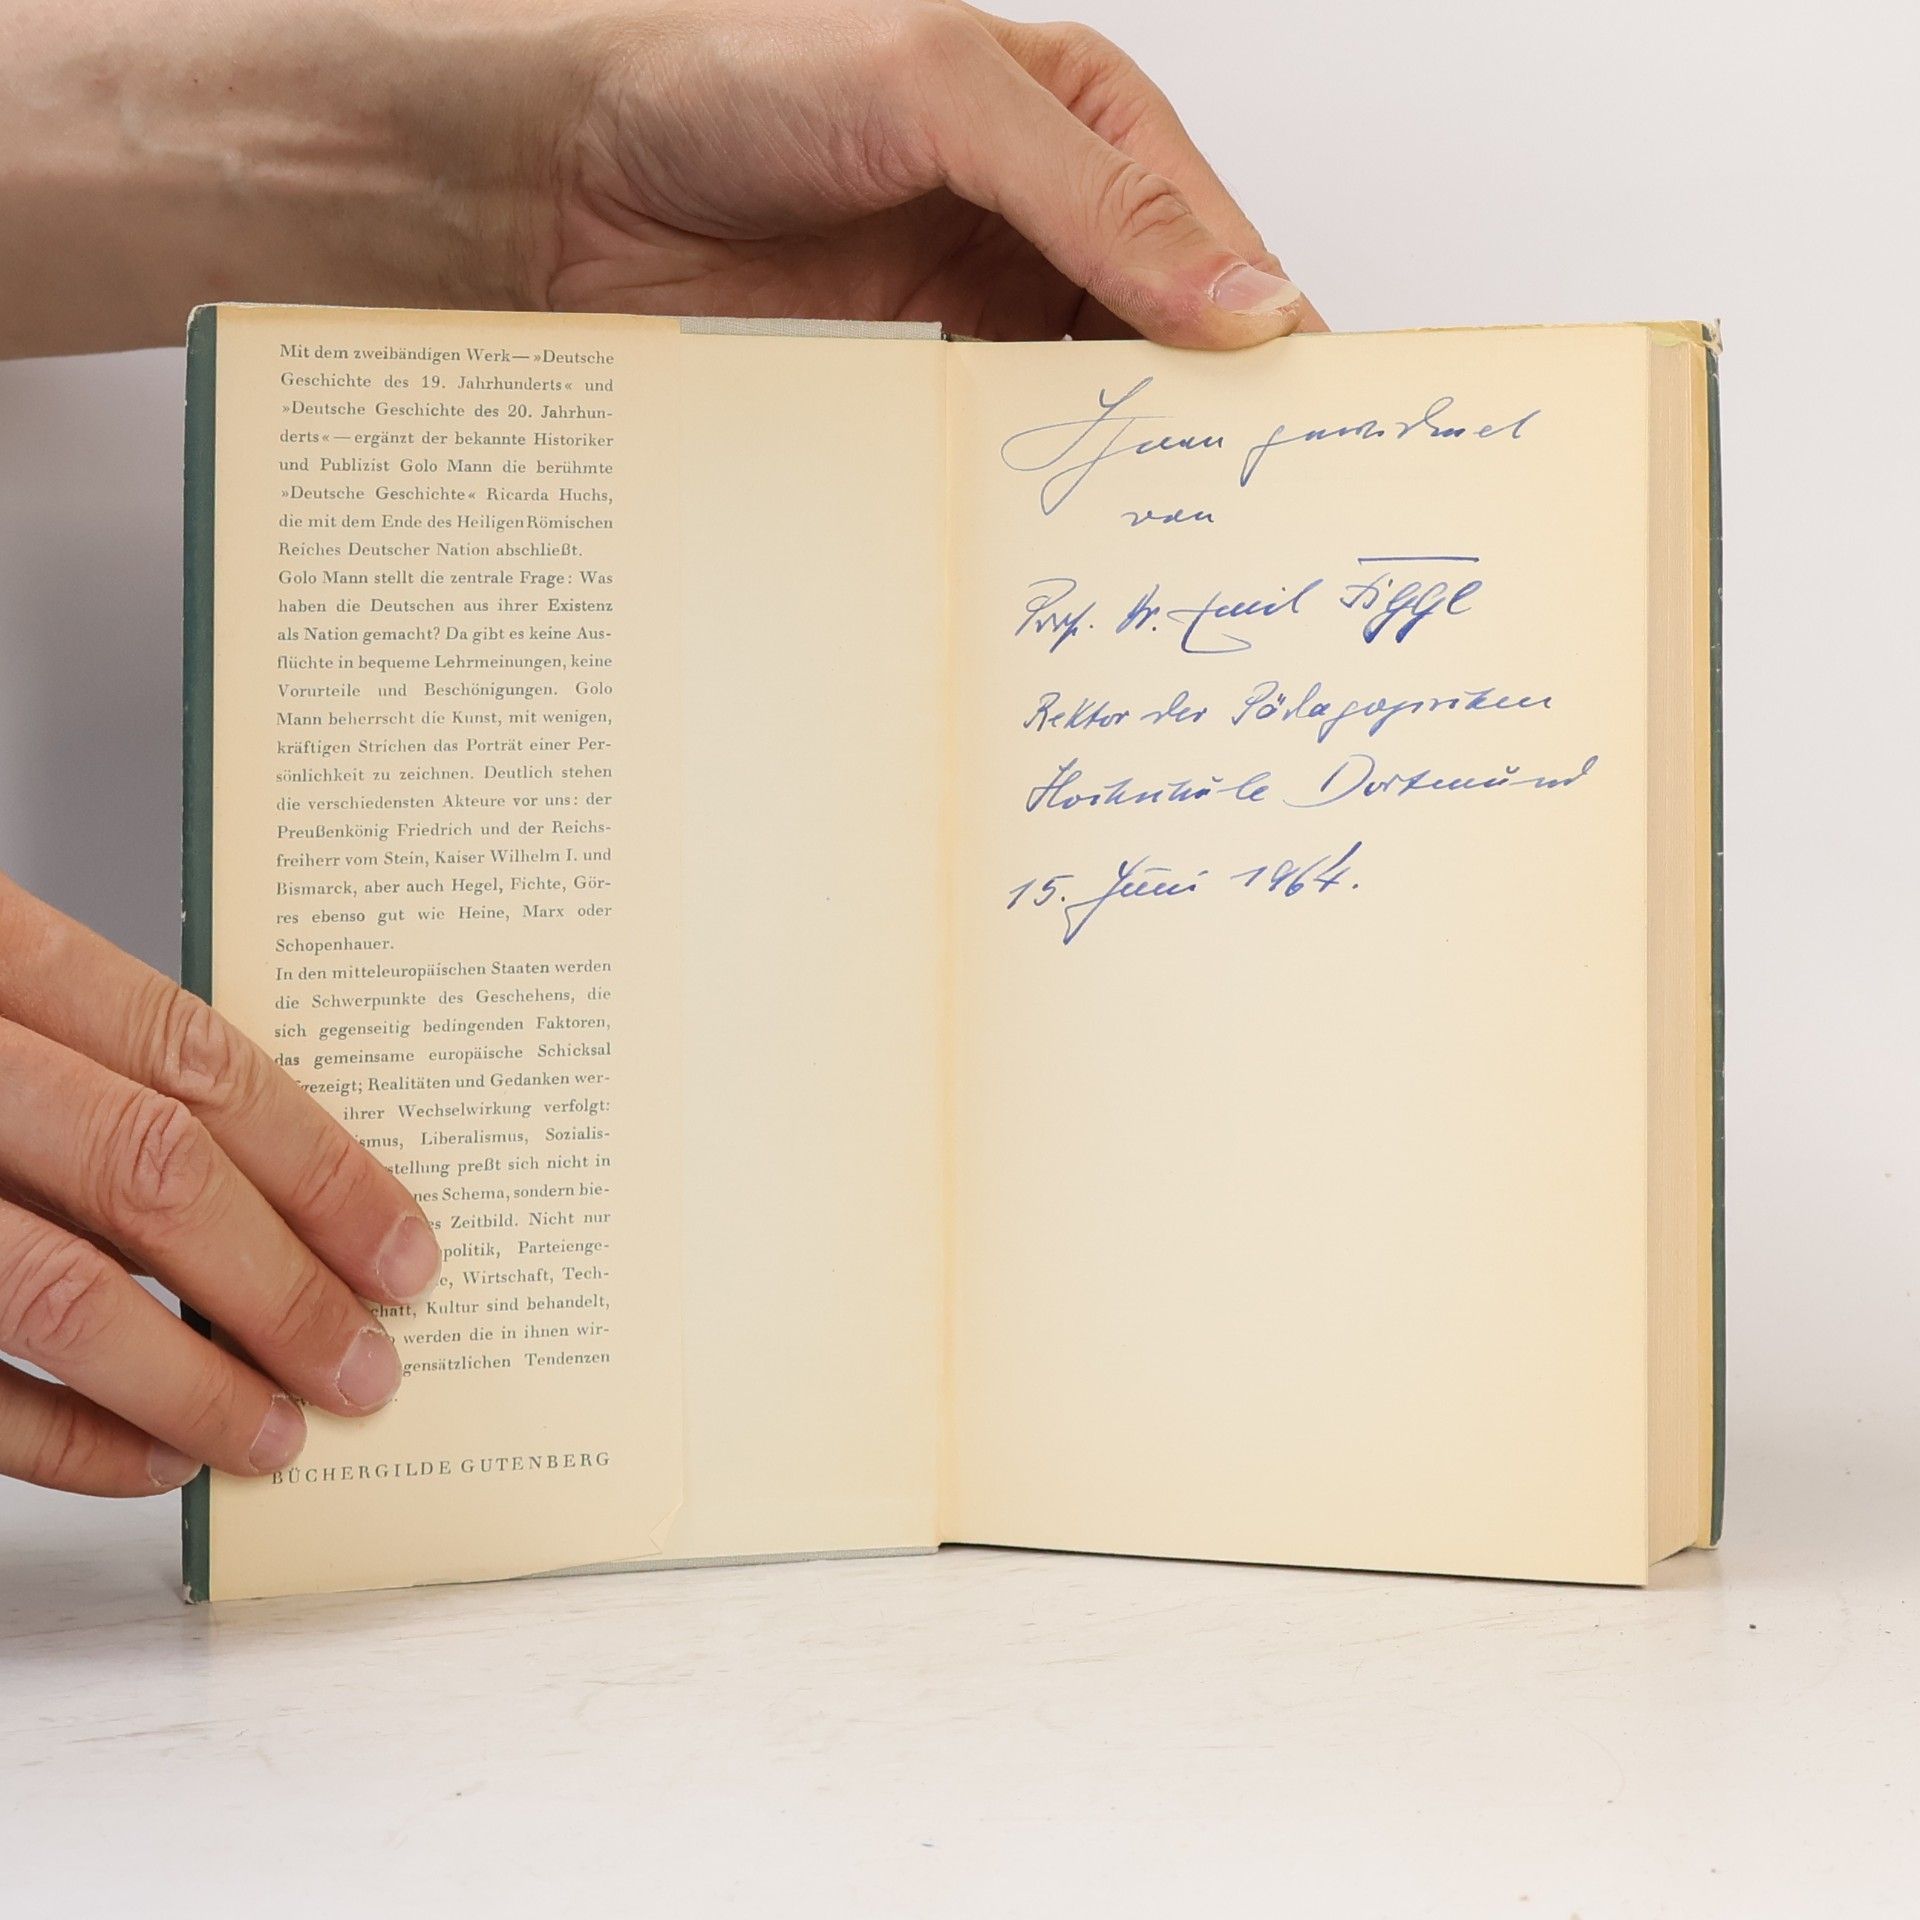 Mit dem zweibändigen Werk — »Deutsche
Geschichte des 19. Jahrhunderts« und
»Deutsche Geschichte des 20. Jahrhun-
derts« — ergänzt der bekannte Historiker
und Publizist Golo Mann die berühmte
»Deutsche Geschichte« Ricarda Huchs,
die mit dem Ende des Heiligen Römischen
Reiches Deutscher Nation abschließt.
Golo Mann stellt die zentrale Frage: Was
haben die Deutschen aus ihrer Existenz
als Nation gemacht? Da gibt es keine Aus-
flüchte in bequeme Lehrmeinungen, keine
Vorurteile und Beschönigungen. Golo
Mann beherrscht die Kunst, mit wenigen,
kräftigen Strichen das Porträt einer Per-
sönlichkeit zu zeichnen. Deutlich stehen
die verschiedensten Akteure vor uns: der
Preußenkönig Friedrich und der Reichs-
freiherr vom Stein, Kaiser Wilhelm I. und
Bismarck, aber auch Hegel, Fichte, Gör-
res ebenso gut wie Heine, Marx oder
Schopenhauer.
In den mitteleuropäischen Staaten werden
die Schwerpunkte des Geschehens, die
sich gegenseitig bedingenden Faktoren,
das gemeinsame europäische Schicksal
gezeigt; Realitäten und Gedanken wer-
ihrer Wechselwirkung verfolgt:
ismus, Liberalismus, Sozialis-
stellung preßt sich nicht in
nes Schema, sondern bie-
es Zeitbild. Nicht nur
politik, Parteienge-
Wirtschaft, Tech-
chaft, Kultur sind behandelt,
werden die in ihnen wir-
gensätzlichen Tendenzen
BÜCHERGILDE GUTENBERG
gewidmet
von
Prof. Dr. Emil Figge
Rektor der Pädagogischen
Hochschule Dortmund
15. Juni 1964.